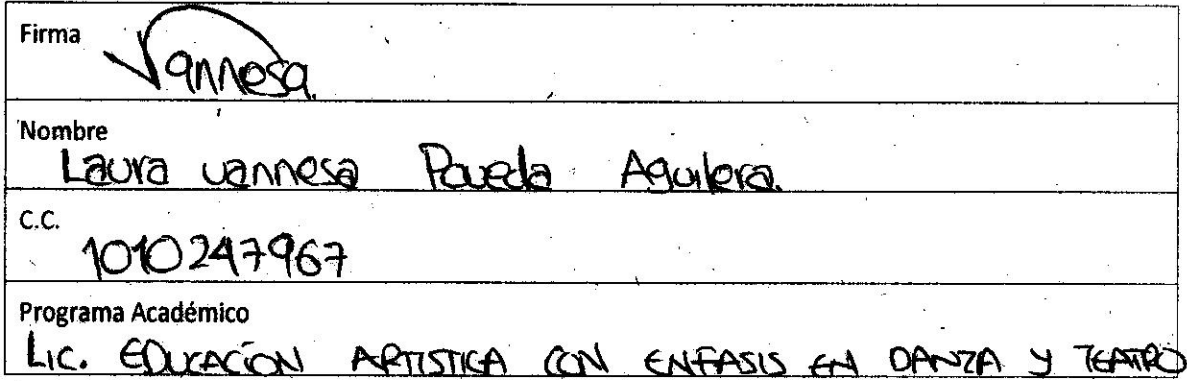 Firma
Vannesa.
Nombre
Laura vannesa Poveda Aguilera.
C.C.
1010247967
Programa Académico
LIC. EDUCACIÓN ARTISTICA CON ENFASIS EN DANZA Y TEATRO